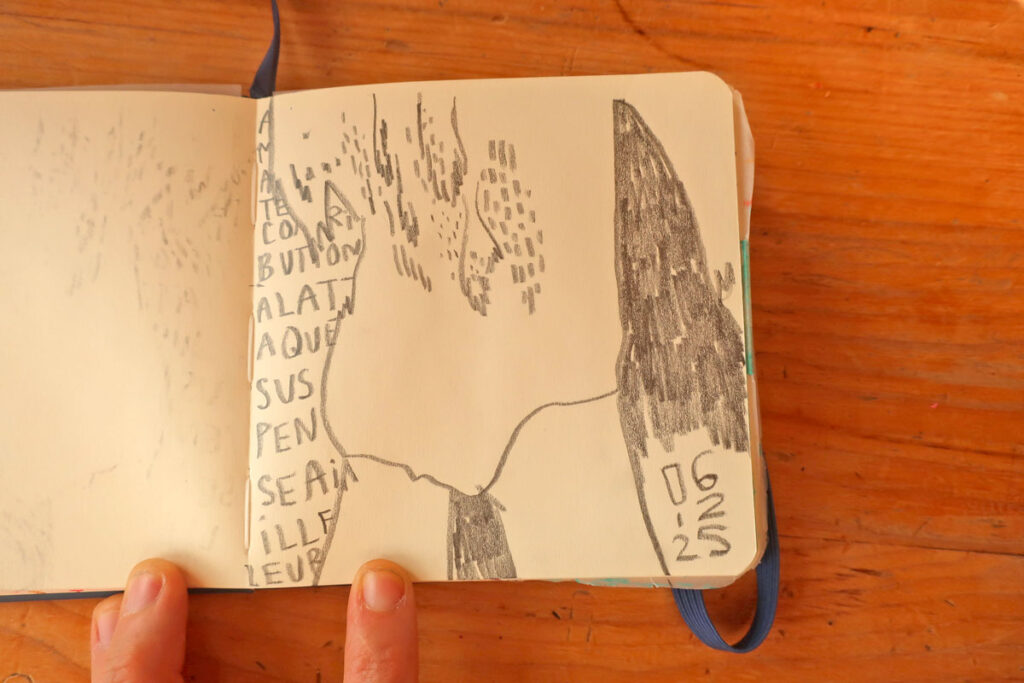 A
M
A
TE
CONTRI
BUTION
ALATT
AQUE
SUS
PEN
SEAi
iLLE
LEUR
06
12
25